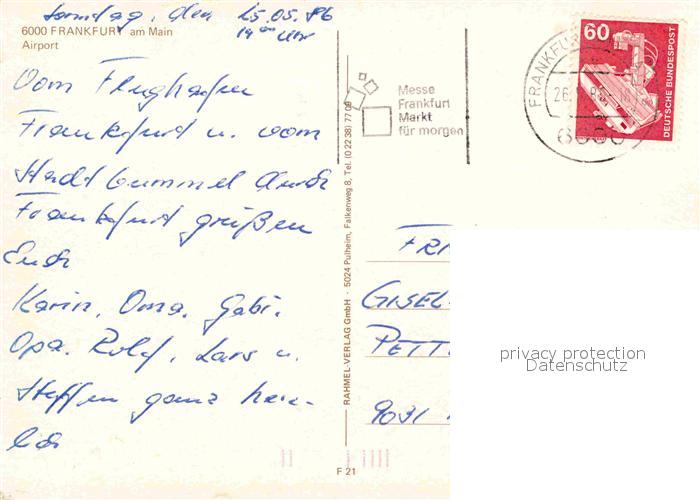 Sonntag, den 25.05.86
19⁰⁰ Uhr
6000 FRANKFURT am Main
Airport
Vom Flughafen
Frankfurd u. vom
Stadtbummel durch
Frankfurd grüßen
Euch
Karin, Oma, Gabi,
Opa, Rolf, Lars u.
Steffen ganz herz-
lich
RAHMEL-VERLAG GmbH · 5024 Pulheim, Falkenweg 8, Tel. (0 22 38) 77 09
F 21
Messe
Frankfurt
Markt
für morgen
FRANKFURT
26.
6000
60
DEUTSCHE BUNDESPOST
FRI
GISEL
PETT
9031
privacy protection
Datenschutz